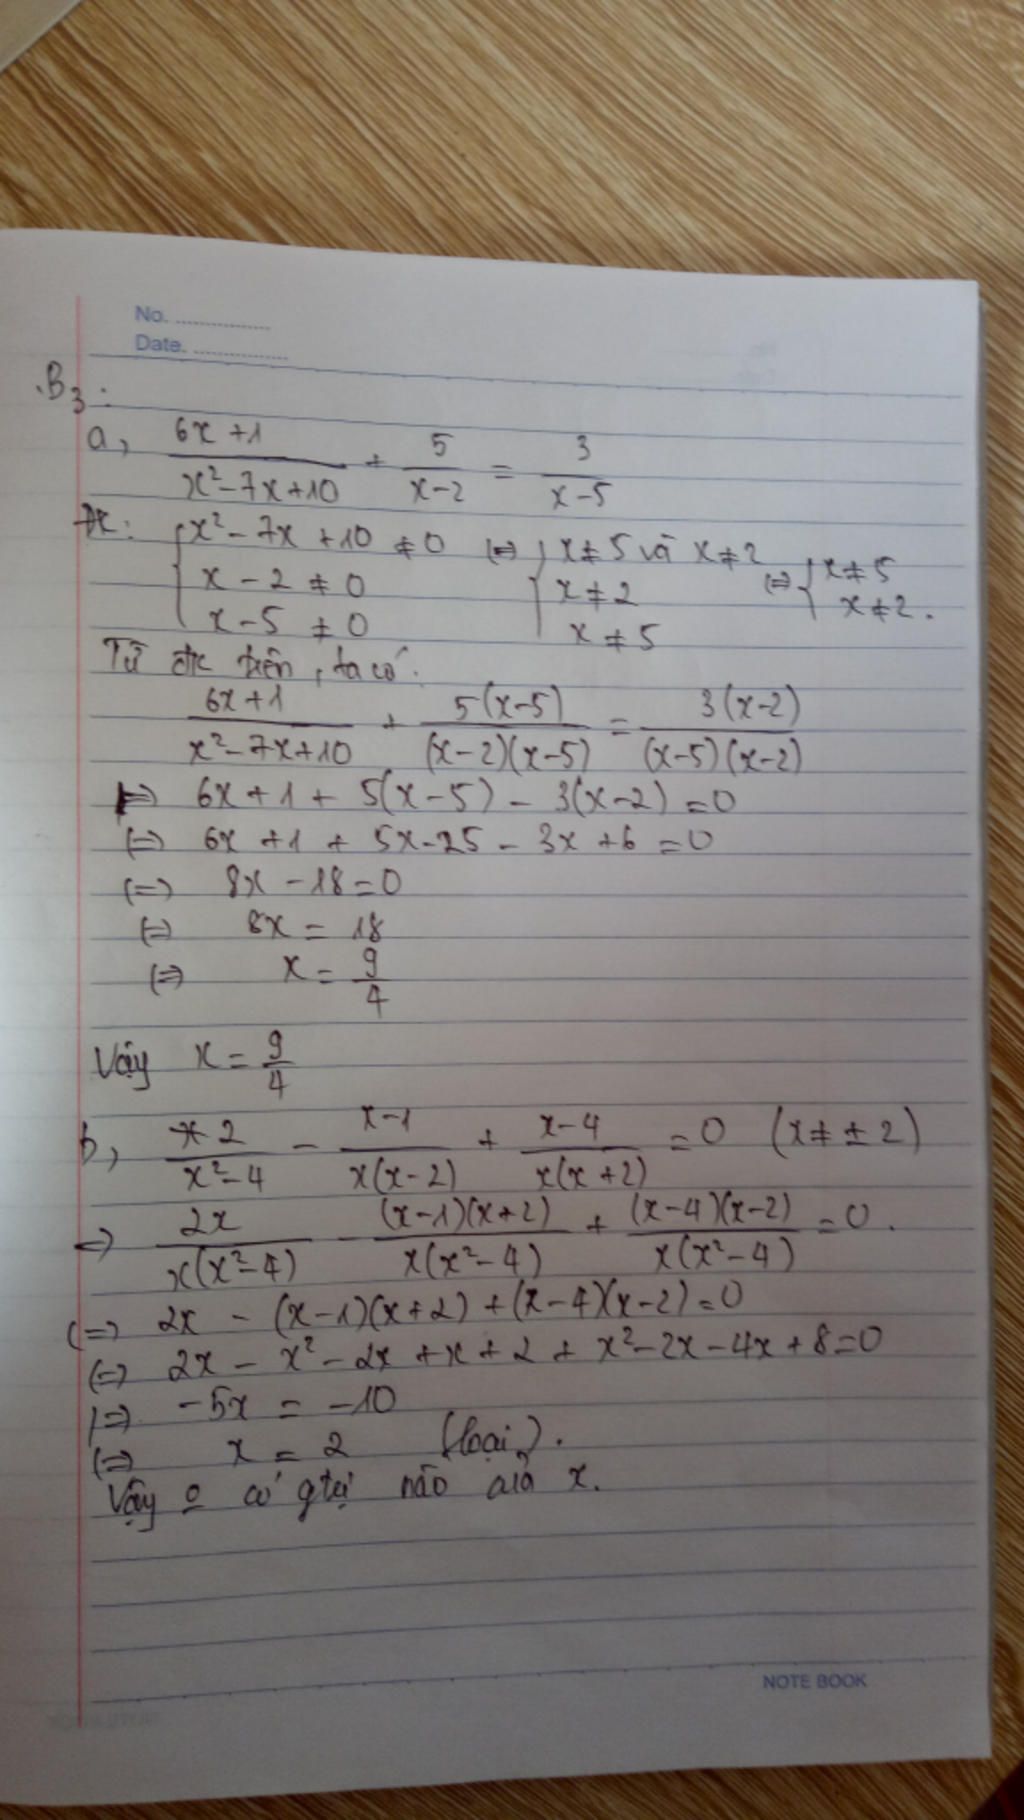 No. ................
Date. ................
B3:
a, (6x+1)/(x²-7x+10) + 5/(x-2) = 3/(x-5)
ĐK: { x²-7x+10 ≠ 0 (=) { x≠5 và x≠2 (=) { x≠5
x-2 ≠ 0 x≠2 x≠2.
x-5 ≠ 0 x≠5
Từ đk trên, ta có:
(6x+1)/(x²-7x+10) + 5(x-5)/((x-2)(x-5)) = 3(x-2)/((x-5)(x-2))
(=) 6x+1+5(x-5)-3(x-2)=0
(=) 6x+1+5x-25-3x+6=0
(=) 8x-18=0
(=) 8x=18
(=) x=9/4
Vậy x=9/4
b, 2/(x²-4) - (x-1)/(x(x-2)) + (x-4)/(x(x+2)) =0 (x≠±2)
=> 2x/(x(x²-4)) - (x-1)(x+2)/(x(x²-4)) + (x-4)(x-2)/(x(x²-4)) =0.
(=) 2x-(x-1)(x+2)+(x-4)(x-2)=0
(=) 2x-x²-2x+x+2+x²-2x-4x+8=0
(=) -5x=-10
(=) x=2 (loại).
Vậy o có gtrị nào của x.
NOTE BOOK